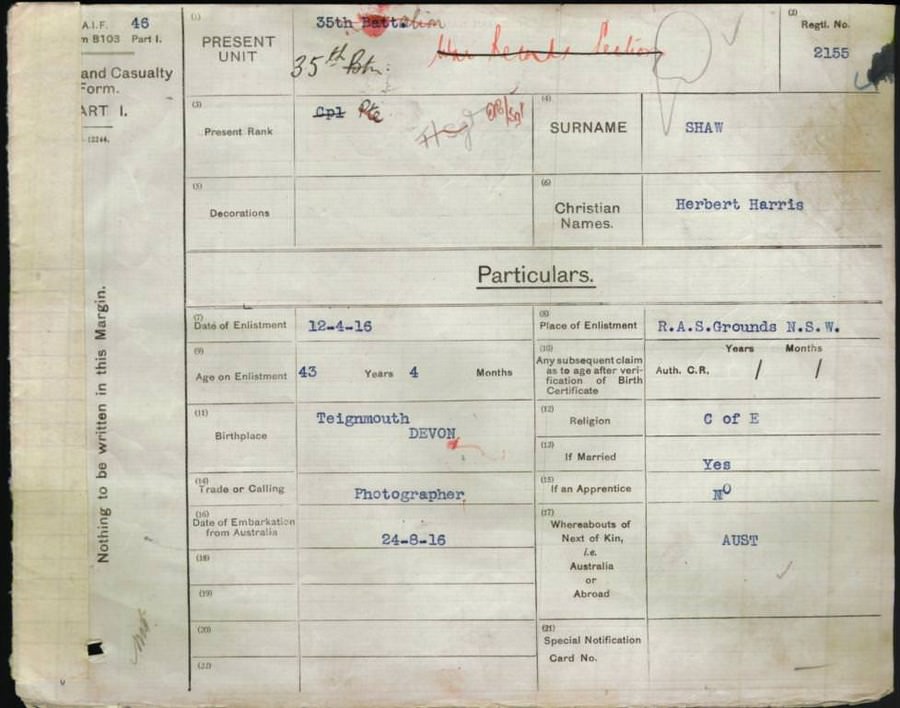 A.I.F. 46
B103 Part I.
and Casualty
Form.
ART I.
12244.
Nothing to be written in this Margin.
(1)
PRESENT
UNIT
35th Battalion
35th Btn.
War Records Section
(2)
Regtl. No.
2155
(3)
Present Rank
Cpl Pte
(4)
SURNAME
SHAW
(5)
Decorations
(6)
Christian
Names.
Herbert Harris
Particulars.
(7)
Date of Enlistment
12-4-16
(8)
Place of Enlistment
R.A.S.Grounds N.S.W.
(9)
Age on Enlistment
43 Years 4 Months
(10)
Any subsequent claim
as to age after veri-
fication of Birth
Certificate
Years Months
Auth. C.R. / /
(11)
Birthplace
Teignmouth
DEVON
(12)
Religion
C of E
(13)
If Married
Yes
(14)
Trade or Calling
Photographer
(15)
If an Apprentice
NO
(16)
Date of Embarkation
from Australia
24-8-16
(17)
Whereabouts of
Next of Kin,
i.e.
Australia
or
Abroad
AUST
(18)
(19)
(20)
(21)
Special Notification
Card No.